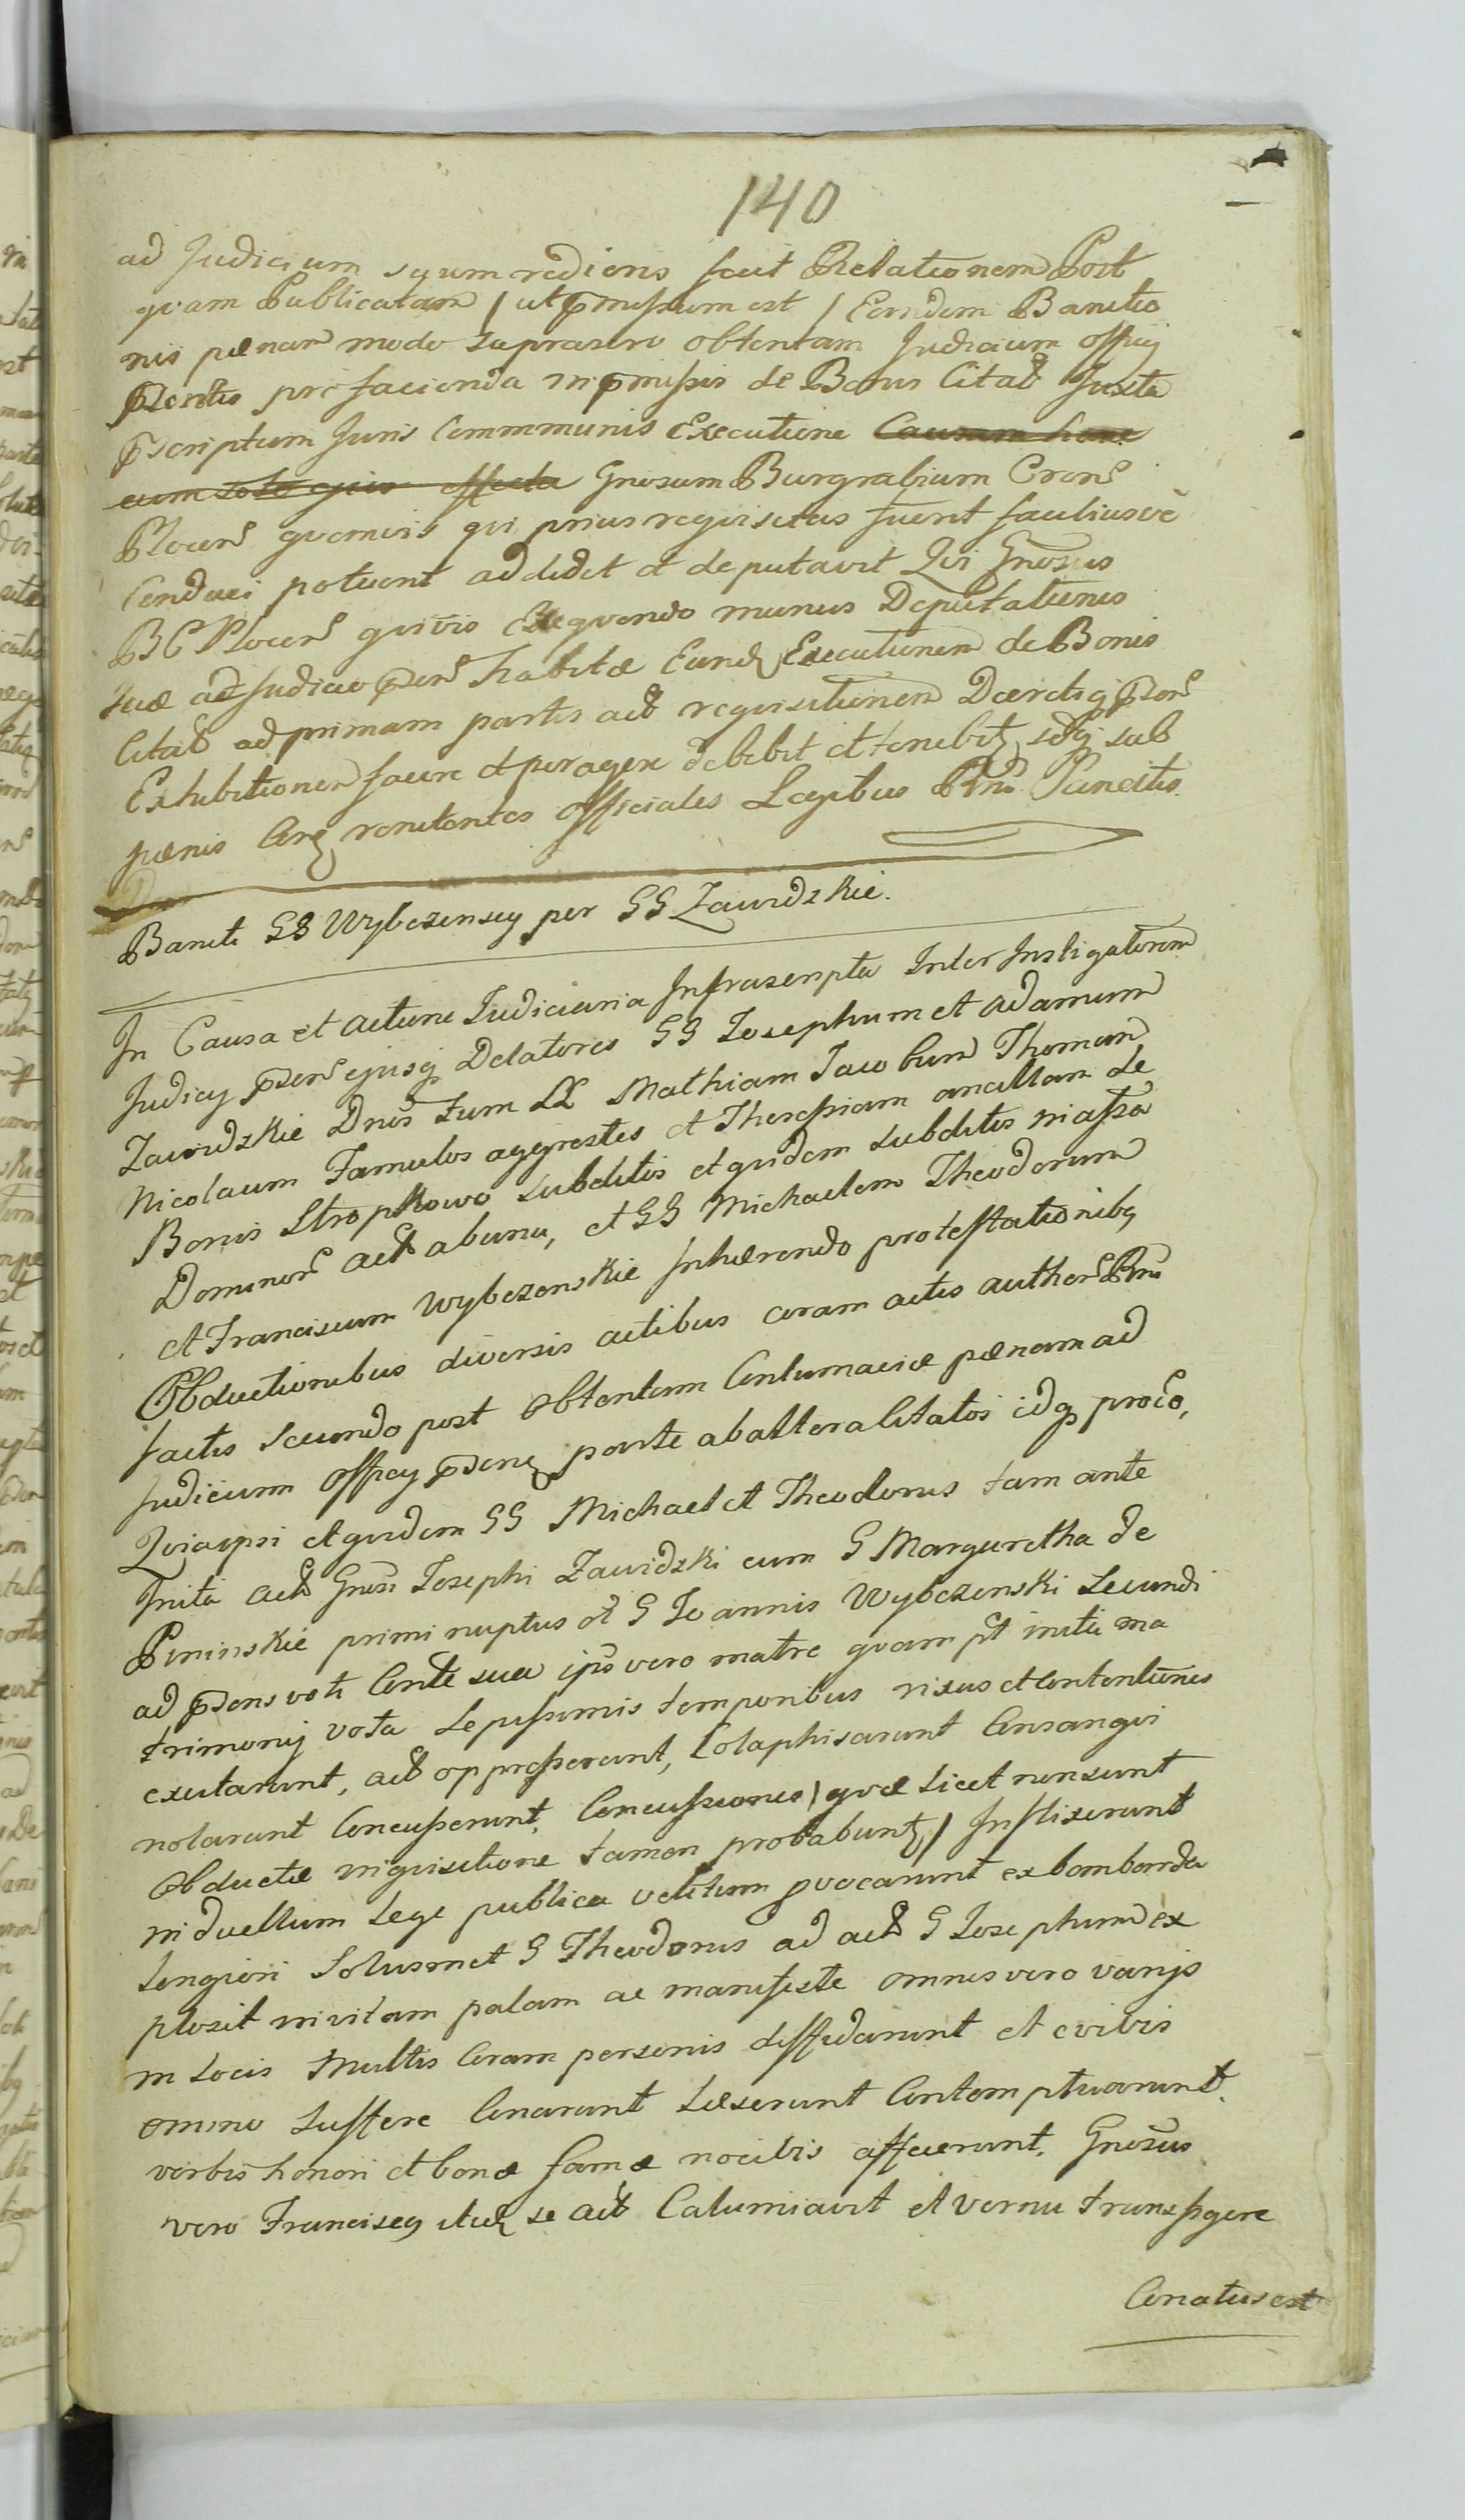 140
ad Judicium syum rediens fecit Relationem Post
quam Publicatam / ut pmissum est / Eandem Banitio
nis pænam modo suprascro obtentam Judicium Officÿ
pÎentis pro facienda in pmissis de Bonis Citat Juxta
pscriptum Juris Commmunis Executione Causam hanc
cum toto ejus effectu Gnosum Burgrabium Cren
Plocen quemvis qui prius requisitus fuerit faciliusve
Conduci poterit addidit et deputavit Qui Gnosus
BC Plocen quivis Exequendo munus Deputationis
suæ ad Judicio psen habitæ Eand Executionem de Bonis
Citat ad primam partis act requisitionem Decretiq psen
Exhibitionem facere et peragere debebit et tenebit, idq sub
pænis Cen renitentes Officiales Legibus Rni Sancitis.
Baniti GG Wybczenscy per GG Zawidzkie.
In Causa et actione Judiciaria Infrascripta Inter Instigatorem
Judicÿ psen ejusq Delatores GG Josephum et Adamum
Zawidzkie Dnos tum LL Mathiam Jacobum Thomam
Nicolaum Famulos aggrestes et Theressiam ancillam de
Bonis Stropkowo subditis et quidem subditis in assa
Dominor act abunu, et GG Michaelem Theodorum
et Franciscum Wybczenskie Inhærendo protestationibq
Obductionibus diversis actibus coram actis author Rni
factis Secundo post obtentam Contumaciæ pænam ad
Judicium Officÿ psens parte ab altera Citatos idq proeo,
Quia ipsi et quidem GG Michael et Theodorus tam ante
Inita act Gnosi Josephi Zawidzki cum G Margaretha de
Pininskie primi nuptus et G Joannis Wybczenski Secundi
ad psens voti Conte sua ipso vero matre quam pt initi ma
trimonÿ vota sepissimis temporibus rixus et Contentiones
excitarunt, act oppresserunt, Colaphisarunt Consangvi
nolarunt Concusserunt, Concussiones / quæ licet non sunt
Obductæ inquisitione tamen probabunt / Inflixerunt
in duellum Lege publica vetitum pvocarunt ex bombarda
Longiori Solusmet G Theodorus ad act G Josephum ex
plosit invitam palam ac manifeste omnes vero varÿs
in Locis Multis Coram personis diffidarunt et e vivis
omino Tuffere Conarunt Læserunt Contemptuarunt.
verbis honori et bonæ famæ nocibis affecerunt. Gnosus
vero Franciscq itid se act Calumiavit et vernu transfigere
Conatus est